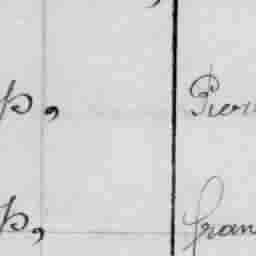 p, Pier
p, fran